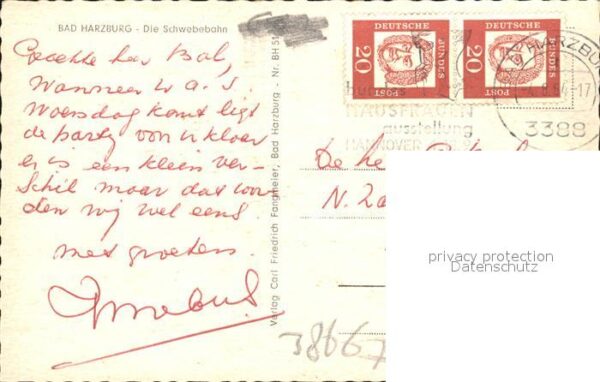 BAD HARZBURG - Die Schwebebahn
Geachte heer Bal,
Wanneer U a.s.
Woensdag komt ligt
de partij voor U klaar
er is een klein ver-
schil maar dat wor
den wij wel eens
met groeten.
Verlag Carl Friedrich Fangmeier, Bad Harzburg - Nr. BH 51
DEUTSCHE BUNDESPOST 20
DEUTSCHE BUNDESPOST 20
HARZBURG
-17
3388
HAUSFRAUEN
ausstellung
HANNOVER
De he
N. Za
privacy protection
Datenschutz
38667